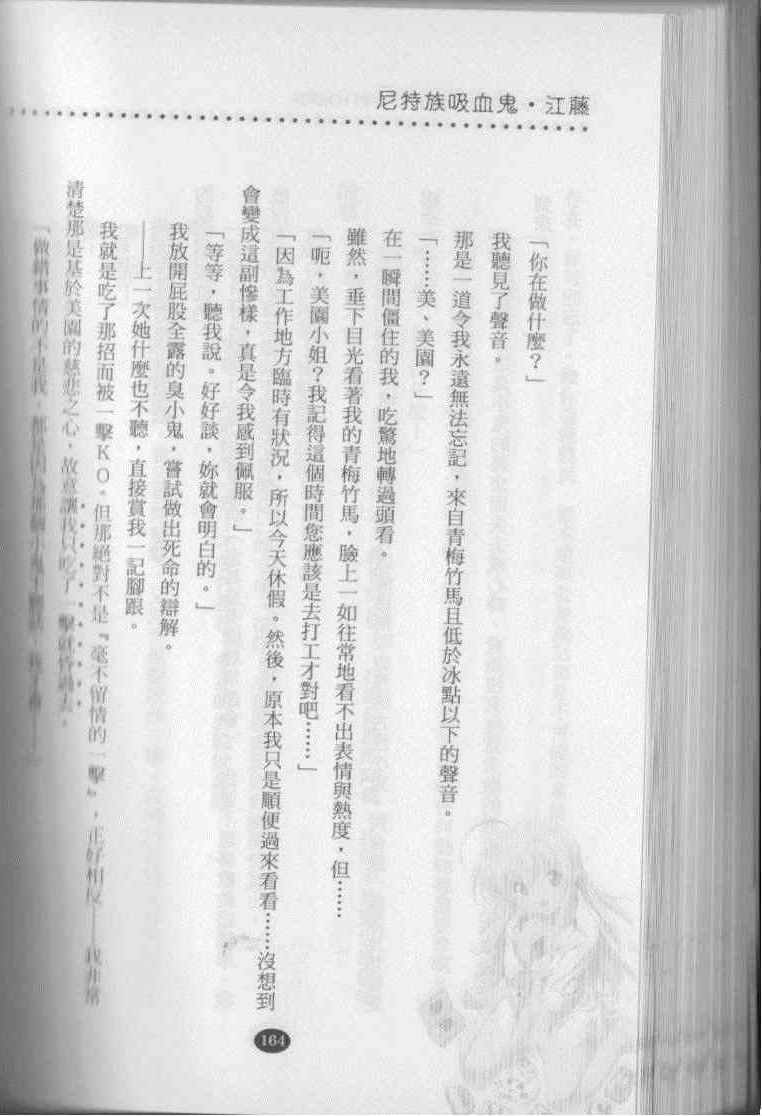 尼特族吸血鬼・江藤
「你在做什麼？」
我聽見了聲音。
那是一道令我永遠無法忘記，來自青梅竹馬且低於冰點以下的聲音。
「……美、美園？」
在一瞬間僵住的我，吃驚地轉過頭看。
雖然，垂下目光看著我的青梅竹馬，臉上一如往常地看不出表情與熱度，但……
「呃，美園小姐？我記得這個時間您應該是去打工才對吧……」
「因為工作地方臨時有狀況，所以今天休假。然後，原本我只是順便過來看看……沒想到
會變成這副慘樣，真是令我感到佩服。」
「等等，聽我說。好好談，妳就會明白的。」
我放開屁股全露的臭小鬼，嘗試做出死命的辯解。
——上一次她什麼也不聽，直接賞我一記腳跟。
我就是吃了那招而被一擊ＫＯ。但那絕對不是『毫不留情的一擊』，正好相反——我非常
清楚那是基於美園的慈悲之心，故意讓我只吃了一擊就昏過去。
「做錯事情的不是我，
164